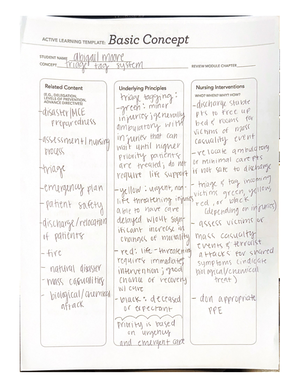 ACTIVE LEARNING TEMPLATE: Basic Concept
STUDENT NAME abigail moore
CONCEPT triage tag system
REVIEW MODULE CHAPTER
Related Content
(E.G., DELEGATION,
LEVELS OF PREVENTION,
ADVANCE DIRECTIVES)
-disaster/MCE
preparedness
-assessment/nursing
process
-triage
-emergency plan
-patient safety
-discharge/relocation
of patients
-fire
-natural disaster
-mass casualties
-biological/chemical
attack
Underlying Principles
triage tagging:
-green: minor
injuries (generally
ambulatory) with
injuries that can
wait until higher
priority patients
are treated, do not
require life support
-yellow: urgent, non-
life threatening injuries
able to have care
delayed without signi-
ficant increase in
chances of mortality
-red: life-threatening
requires immediate
intervention; good
chance of recovery
w/ care
-black: deceased
or expectant
priority is based
on urgency
and emergent care
Nursing Interventions
WHO? WHEN? WHY? HOW?
-discharge stable
pts to free up
beds to
victims of mass
casualty event
-relocate ambulatory
or minimal care pts
if not safe to discharge
-triage & tag incoming
victims green, yellow,
red, or black
(depending on injuries)
-assess victims of
mass casualty
events & terrorist
attacks for shared
symptoms (indicate
biological/chemical
threat)
-don appropriate
PPE